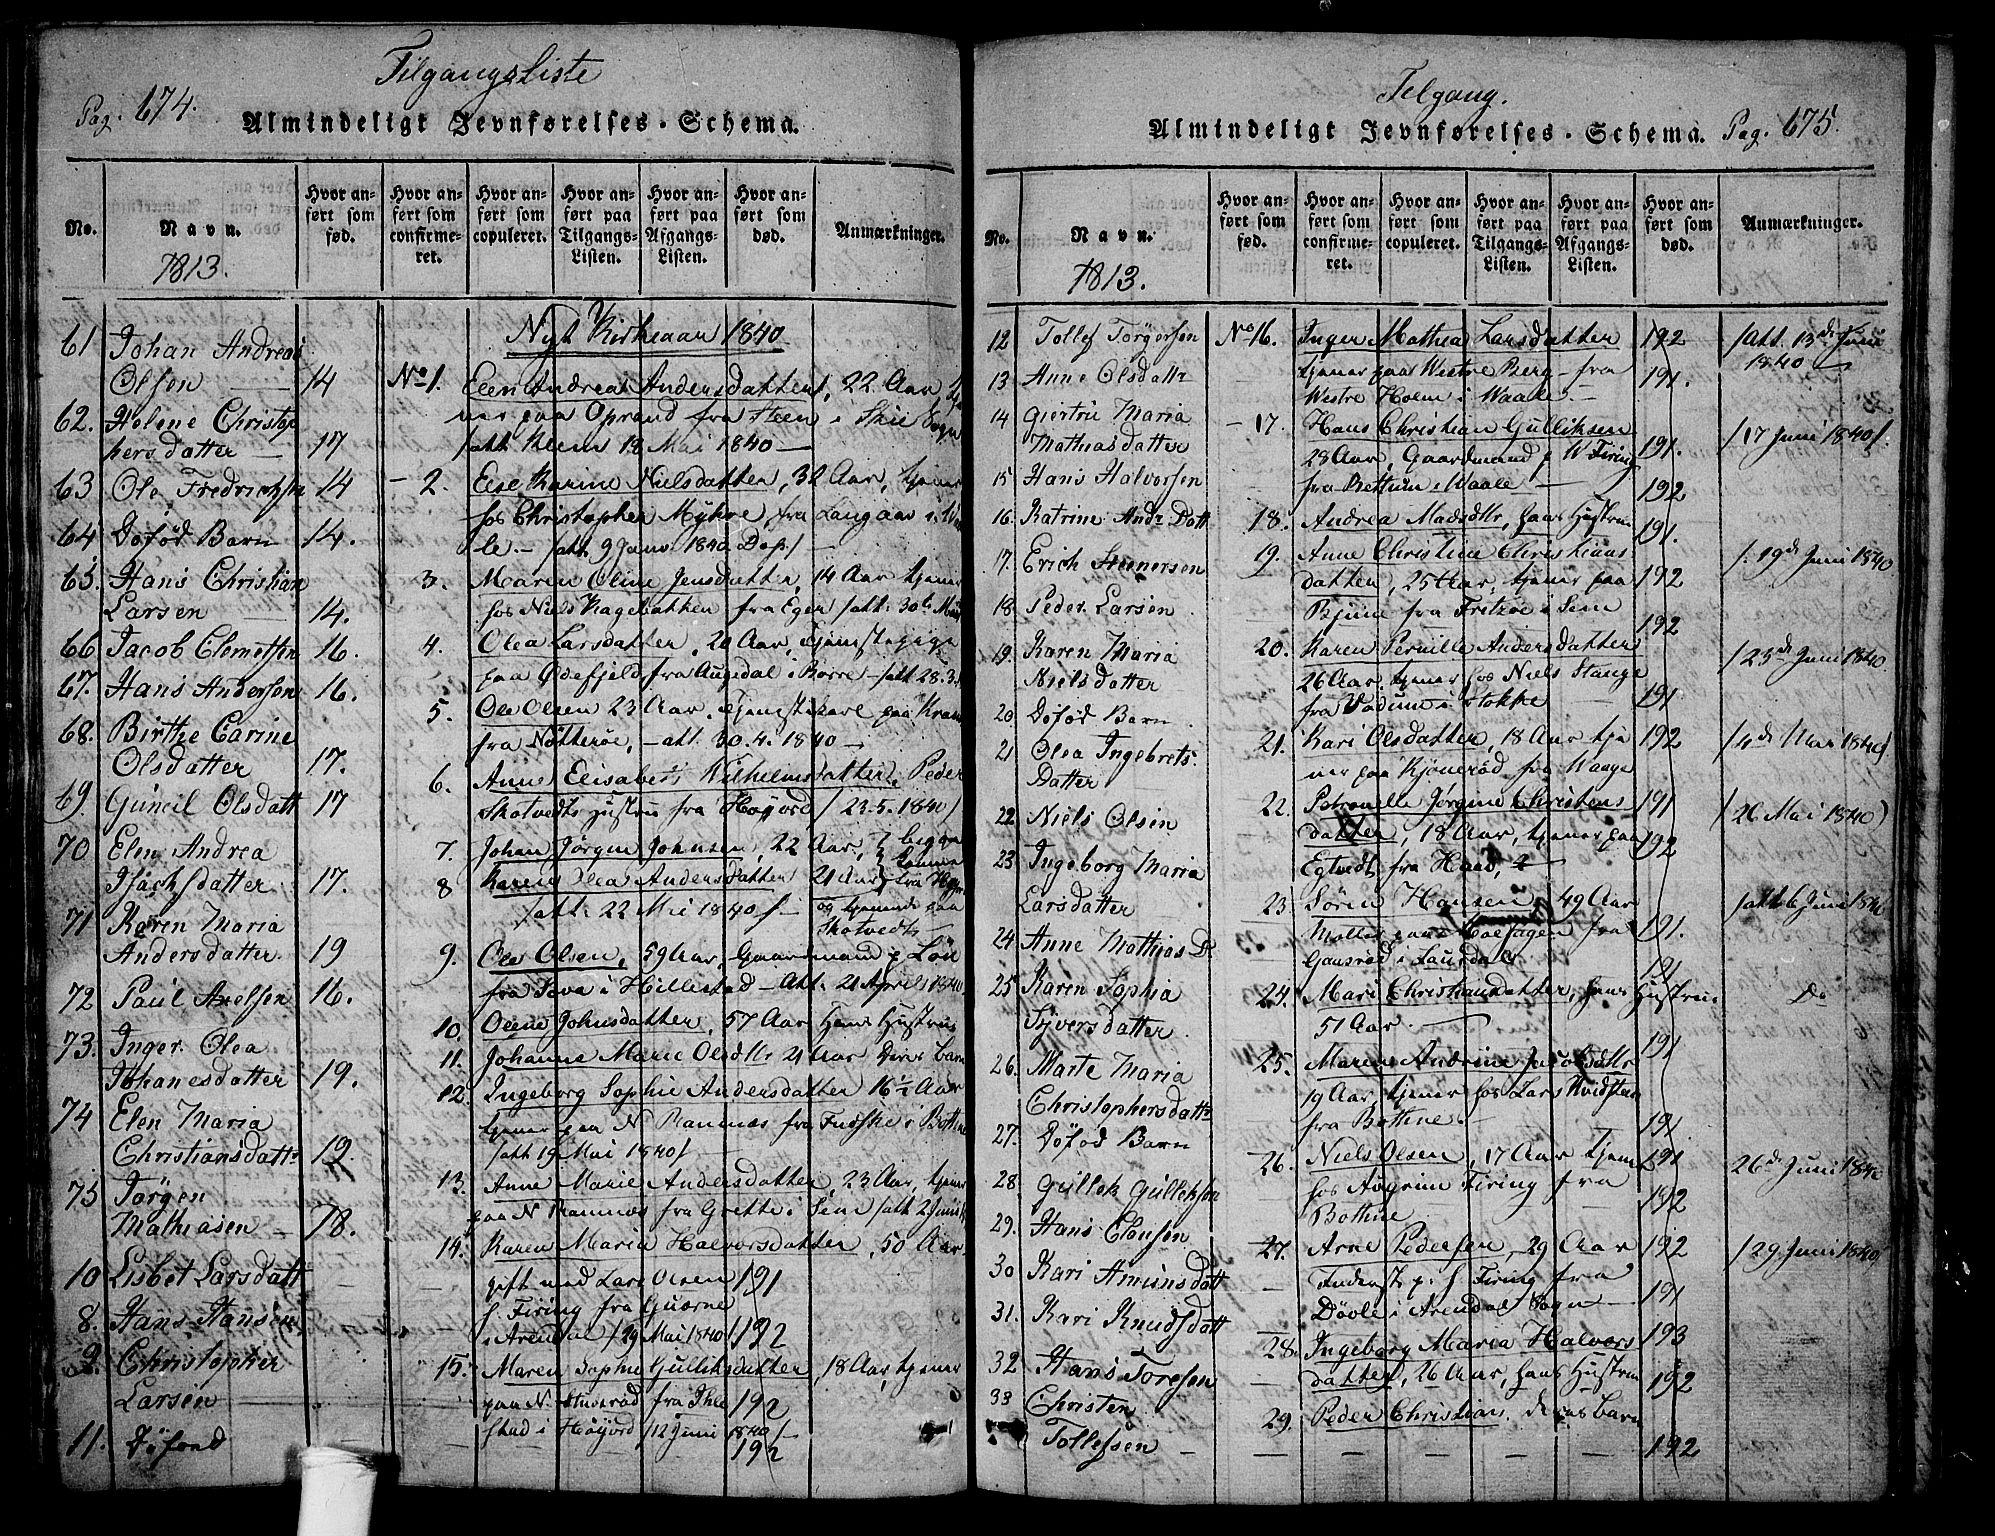 Tilgangsliste
Pag. 174.
Almindeligt Jevnførelses-Schema.
No.
Navn.
1813.
Hvor anført som fød.
Hvor anført som confirmeret.
Hvor anført som copuleret.
Hvor anført paa Tilgangs-Listen.
Hvor anført paa Afgangs-Listen.
Hvor anført som død.
Anmærkninger.
61 Johan Andreas
Olsen 14
62. Helene Christop
hersdatter 17
63 Ole Fredrichsen 14
64 Døfød Barn 14.
65. Hans Christian
Larsen 14.
66 Jacob Clemetsen 16.
67. Hans Andersen 16.
68. Birthe Carine
Olsdatter 17.
69. Guneil Olsdatt 17
70 Elen Andrea
Isachsdatter 17.
71 Karen Maria
Andersdatter 19
72 Paul Axelsen 16.
73. Inger Olea
Johanesdatter 19.
74 Elen Maria
Christiansdattr 19.
75 Jørgen
Mathiasen 78.
10 Lisbet Larsdatt
8. Hans Hansen
9 Christopher
Larsen
11. Døfød
Nyt Kirkeaar 1840
No 1. Elen Andrea Andersdatter, 22 Aar tje
ner paa Oprand fra Steen i Skie Sogn
/att. Klems 18 Mai 1840
2. Else Karine Nielsdatter, 32 Aar, tjener
hos Christopher Myhre, fra Langaar i Vaa
le. /att. 9 Janv. 1840
3. Maren Oline Jensdatter, 14 Aar tjener
hos Niels Hagebakken fra Eger /att. 30te
4. Olea Larsdatter, 20 Aar, Tjenstepige
paa Ødefjeld, fra Augedal i Borre /att. 28.3.
5. Ole Olsen 23 Aar, Tjenstekarl paa
fra Nøtterøe, att. 30.4.1840
6. Anne Elisabeth Wilhelmsdatter, Peder
Skotvedts Hustru fra Høyord /23.5.1840/
7. Johan Jørgen Johnsen, 22 Aar, begge
8 Karen Olea Andersdatter 21 Aar
/att. 22 Mai 1840/ og tjenende paa
Skotvedt
9. Ole Olsen, 59 Aar, Gaardmand p Løv
fra Tova i Hillestad - Att. 21 April 1840
10. Olene Johnsdatter, 57 Aar Hans Hustrue
11. Johanne Marie Olsdtr 21 Aar Deres Barn
12. Ingeborg Sophie Andersdatter 16½ Aar
tjener paa N Ramnæs fra Fudske i Bothne
/att 19 Mai 1840/
13. Anne Marie Andersdatter 23 Aar, tjener
paa N Ramnæs fra Grette i Sem /att 2 Juni
14. Karen Maria Halvorsdatter, 50 Aar
gift med Lars Olsen 191
S. Firing fra Guerne
i Arendal /29 Mai 1840 192
15. Maren Sophie Gulliksdatter, 18 Aar, tjener
paa N. Stuverød fra Ihle 192
stad i Høyord /12 Juni 1840/
192
Telgang.
Almindeligt Jevnførelses-Schema. Pag. 175.
No.
Navn.
1813.
Hvor anført som fød.
Hvor anført som confirmeret.
Hvor anført som copuleret.
Hvor anført paa Tilgangs-Listen.
Hvor anført paa Afgangs-Listen.
Hvor anført som død.
Anmærkninger.
12 Tollef Torgersen
13 Anne Olsdattr
14 Giertru Maria
Mathiasdatter
15 Hans Halvorsen
16. Katrine Andr. Datt
17. Erich Steenersen
18. Peder Larsen
19. Karen Maria
Nielsdatter
20 Døfød Barn
21 Olea Ingebrets
Datter
22 Niels Olsen
23. Ingeborg Maria
Larsdatter
24. Anne Mathias D.
25 Karen Sophia
Syversdatter
26. Marte Maria
Christophersdattr
27. Døfød Barn
28 Gullek Gulleksen
29. Hans Clausen
30 Kari Amunsdatt
31. Kari Knudsdatt
32 Hans Toresen
33 Christen
Tollefsen
No 16. Inger Mathea Larsdatter 192 /att. 13de Juni
1840
tjener paa Westre Berg fra 191.
Westre Holm i Waale.
17. Hans Christian Gulliksen /17 Juni 1840/
28 Aar, Gaardmand p W Firing 191.
fra Rettum i Waale 192
18. Andrea Madsdtr, hans Hustrue 191.
19. Anne Christine Christians /19de Juni 1840
datter, 25 Aar, tjener paa 192
Bjune fra Fritzøe i Sem 192
20. Karen Pernille Andersdatter /23de Juni 1840
26 Aar, tjener hos Niels Stange
fra Vadum i Stokke 191
21. Kari Olsdatter, 18 Aar tje 192 /4de Mai 1840/
ner paa Kjønerød, fra Waage
22. Petronelle Jørgine Christens 191 /20 Mai 1840/
datter, 18 Aar, tjener paa 192
Egtvedt fra Haas,
23. Søren Hansen, 49 Aar /att 6 Juni 1840
Møller paa fra 191.
Gausrød i Laurdal 191
24. Mari Christiansdatter, hans Hustrue Do
51 Aar.
25. Maren Andrine Jacobsdtr 191
19 Aar, tjener hos Lars Hvidsten
fra Bothne. 191
26. Niels Olsen, 17 Aar tjener 191 26de Juni 1840
hos Angrim Firing fra 192
Bothne
27. Arne Pedersen, 29 Aar 192 /29 Juni 1840/
Inderst p. S Firing fra
Døvle i Arendal Sogn 191
28. Ingeborg Maria Halvors 193
datter, 26 Aar, hans Hustrue 192
29. Peder Christian, deres Barn
192